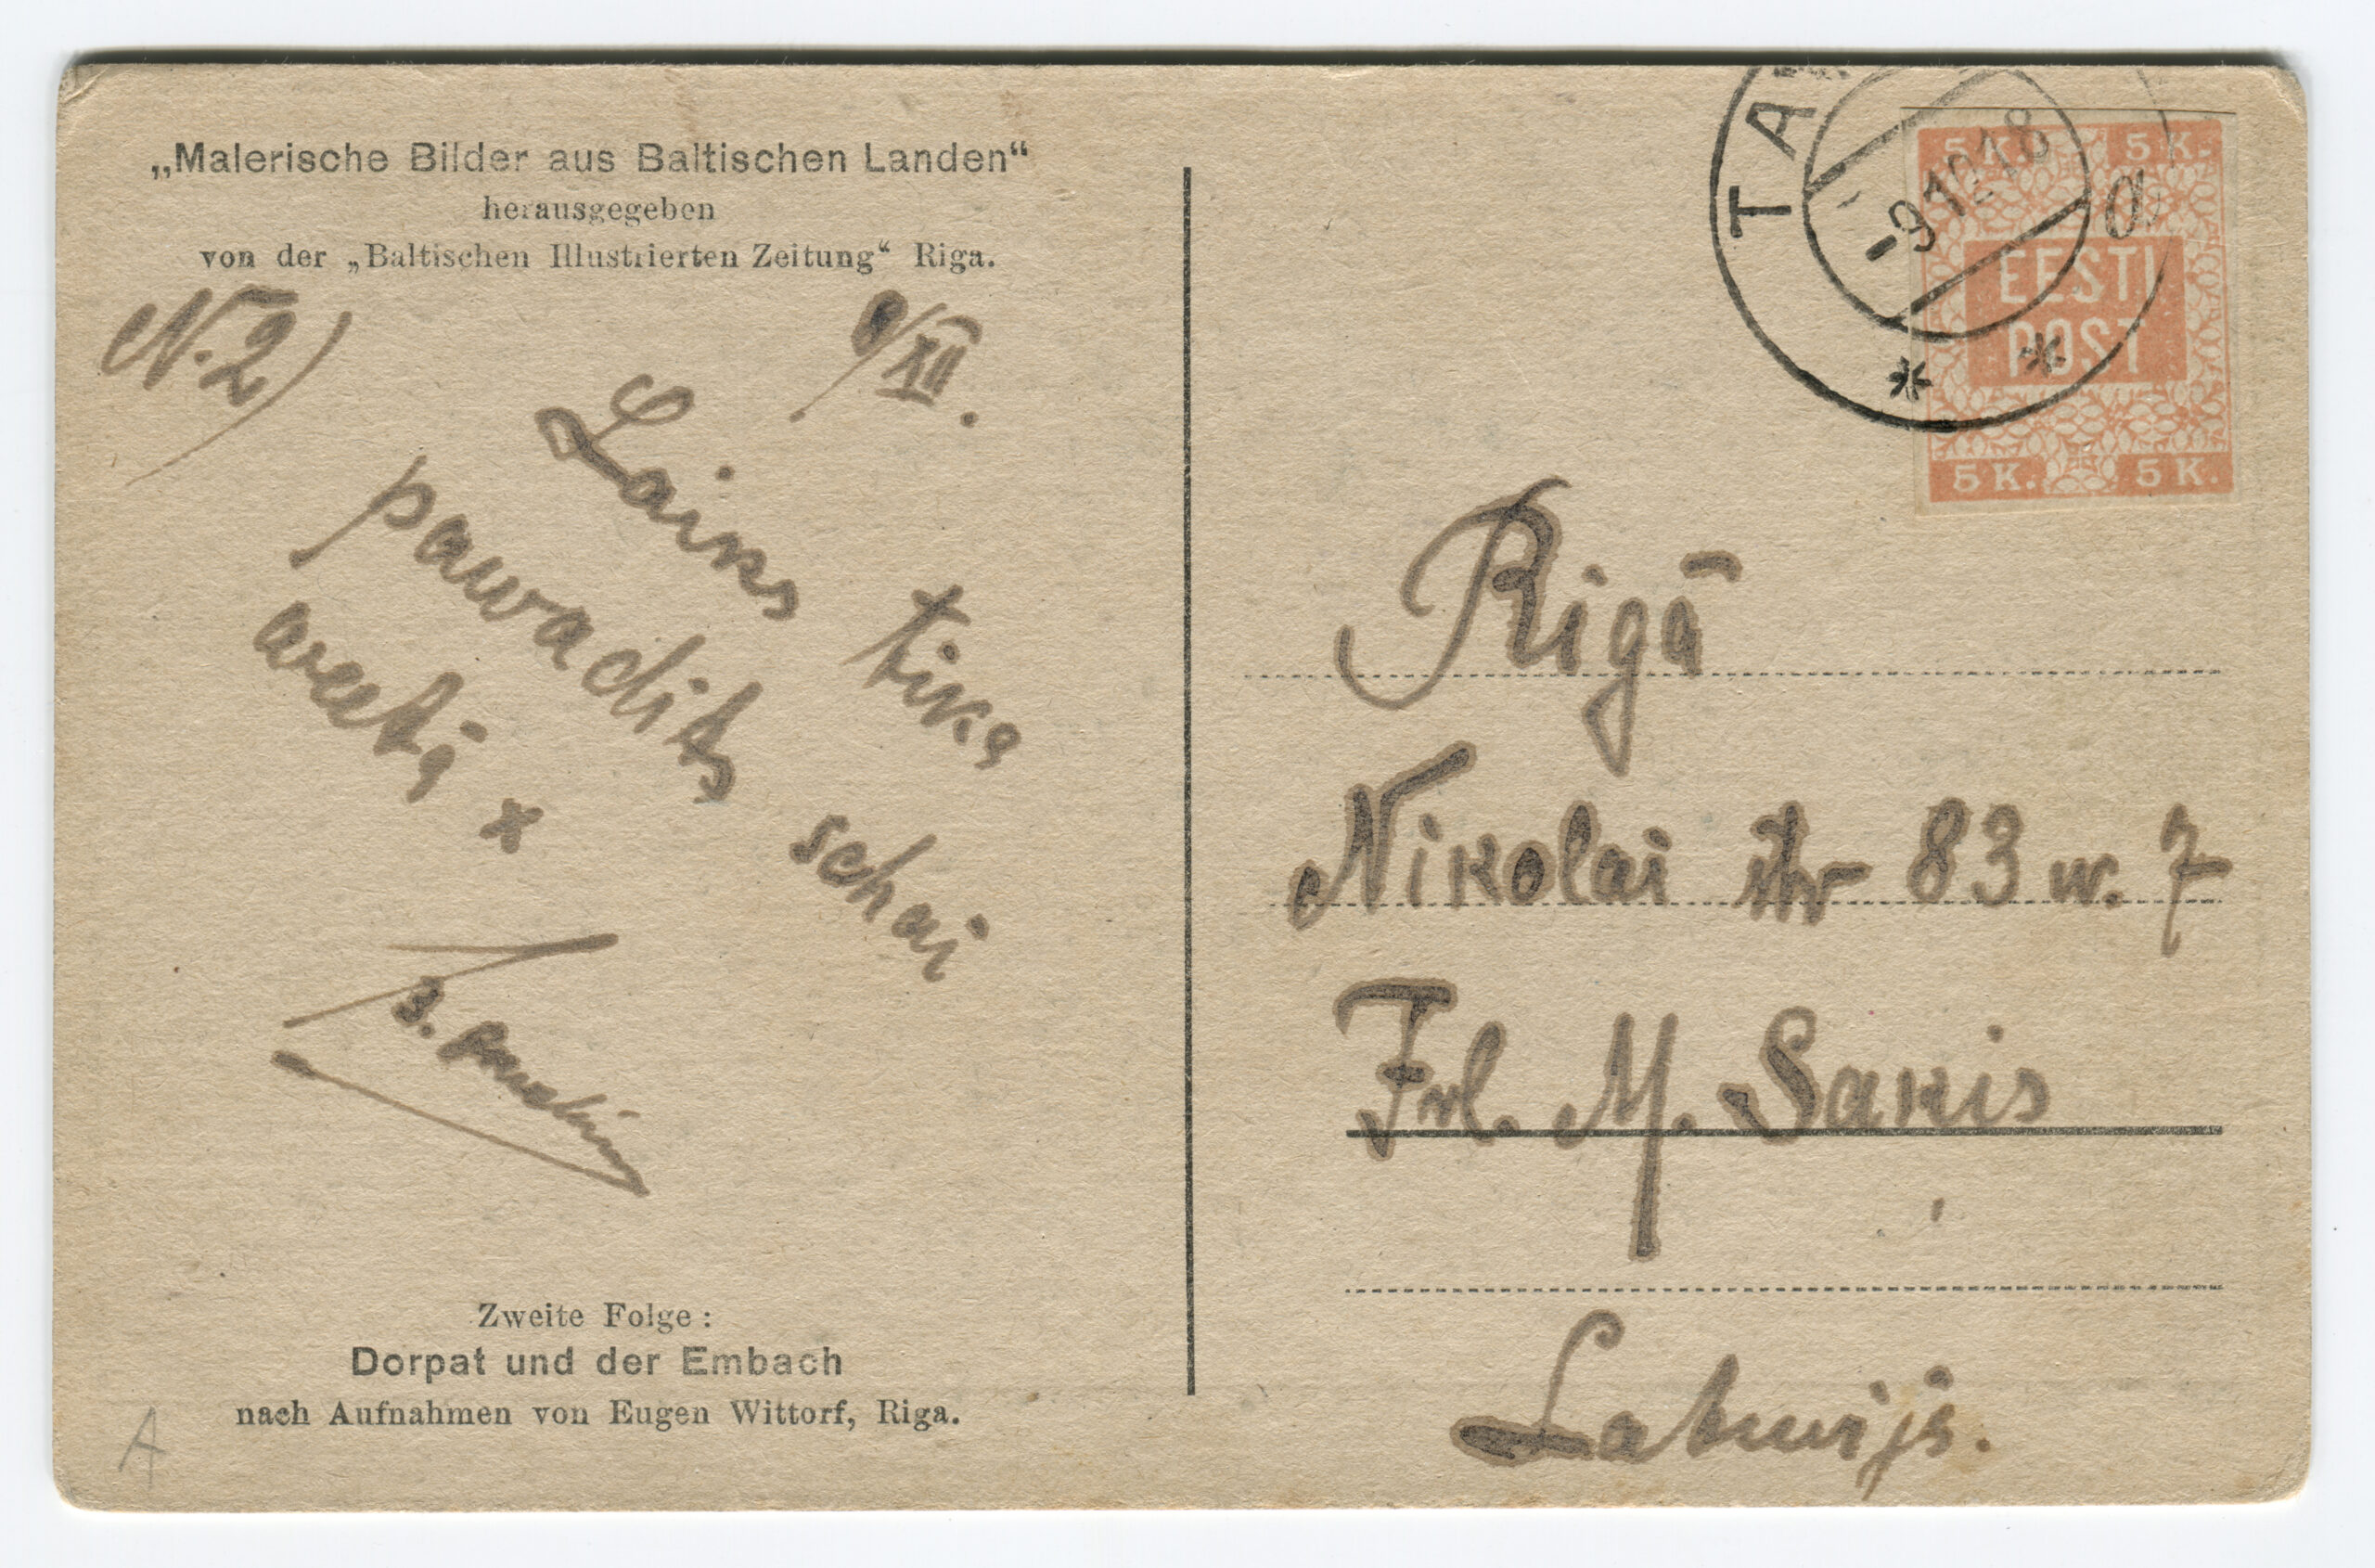 „Malerische Bilder aus Baltischen Landen“
herausgegeben
von der „Baltischen Illustrierten Zeitung“ Riga.
N.2)
9/XII.
Laiks tika
pawadits schai
weetâ x
Zweite Folge:
Dorpat und der Embach
nach Aufnahmen von Eugen Wittorf, Riga.
A
TA
-9 12 18
a
5 K. 5 K.
EESTI
POST
5 K. 5 K.
Rigā
Nikolai str 83 w. 7
Frl. M. Sakis
Latwijā.